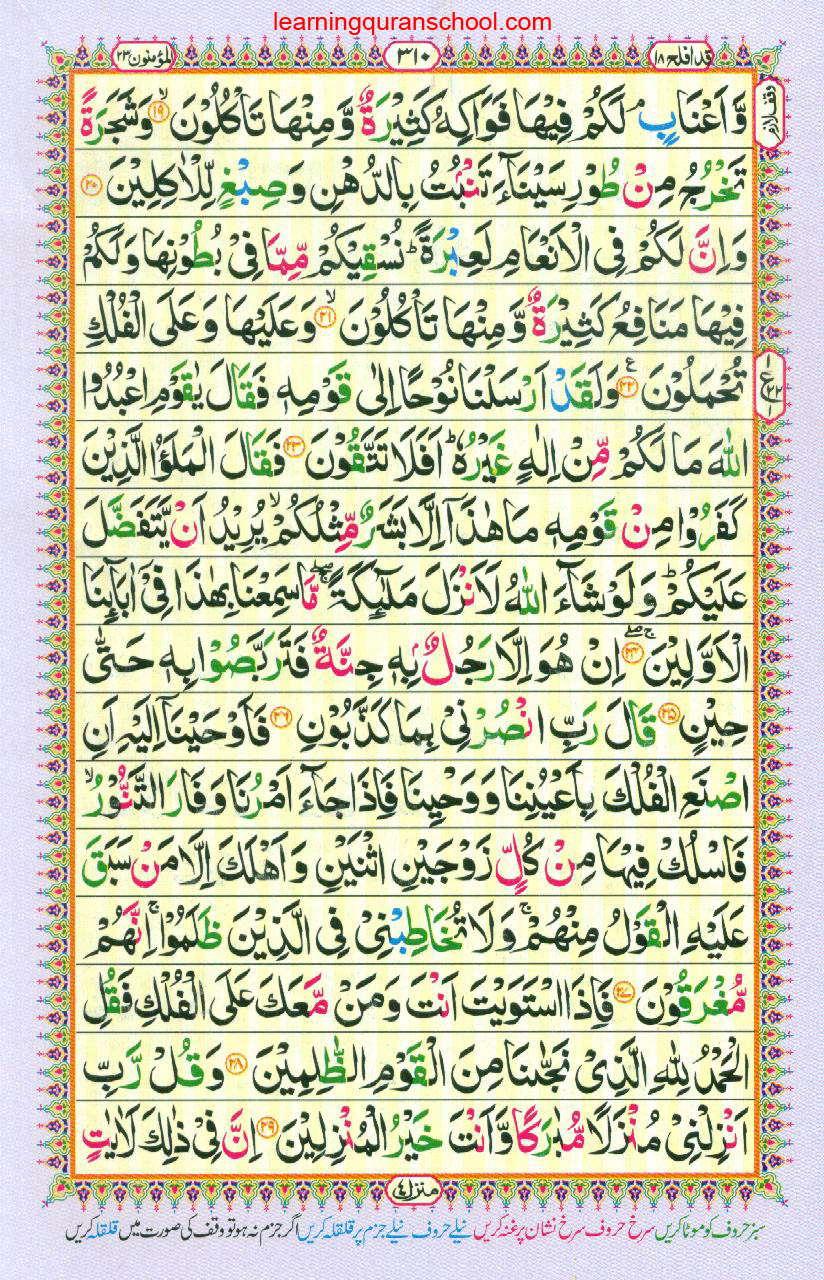 learningquranschool.com
قد افلح ۱۸
۳۱۰
المؤمنون ۲۳
وَّاَعْنَابٍ ۘ لَكُمْ فِيْهَا فَوَاكِهُ كَثِيْرَةٌ وَّمِنْهَا تَاْكُلُوْنَ ۙ‏﴿۱۹﴾ وَشَجَرَةً
وقف لازم
تَخْرُجُ مِنْ طُوْرِ سَيْنَآءَ تَنْۢبُتُ بِالدُّهْنِ وَصِبْغٍ لِّلْاٰكِلِيْنَ ﴿۲۰﴾
وَاِنَّ لَكُمْ فِى الْاَنْعَامِ لَعِبْرَةً ؕ نُسْقِيْكُمْ مِّمَّا فِىْ بُطُوْنِهَا وَلَكُمْ
فِيْهَا مَنَافِعُ كَثِيْرَةٌ وَّمِنْهَا تَاْكُلُوْنَ ۙ﴿۲۱﴾ وَعَلَيْهَا وَعَلَى الْفُلْكِ
تُحْمَلُوْنَ ﴿۲۲﴾ ع وَلَقَدْ اَرْسَلْنَا نُوْحًا اِلٰى قَوْمِهٖ فَقَالَ يٰقَوْمِ اعْبُدُوا
اللّٰهَ مَا لَكُمْ مِّنْ اِلٰهٍ غَيْرُهٗ ؕ اَفَلَا تَتَّقُوْنَ ﴿۲۳﴾ فَقَالَ الْمَلَؤُا الَّذِيْنَ
كَفَرُوْا مِنْ قَوْمِهٖ مَا هٰذَاۤ اِلَّا بَشَرٌ مِّثْلُكُمْ ۙ يُرِيْدُ اَنْ يَّتَفَضَّلَ
عَلَيْكُمْ ؕ وَلَوْ شَآءَ اللّٰهُ لَاَنْزَلَ مَلٰٓئِكَةً ۖۚ مَّا سَمِعْنَا بِهٰذَا فِىْۤ اٰبَآئِنَا
الْاَوَّلِيْنَ ۚ‏﴿۲۴﴾ اِنْ هُوَ اِلَّا رَجُلٌۢ بِهٖ جِنَّةٌ فَتَرَبَّصُوْا بِهٖ حَتّٰى
حِيْنٍ ﴿۲۵﴾ قَالَ رَبِّ انْصُرْنِىْ بِمَا كَذَّبُوْنِ ﴿۲۶﴾ فَاَوْحَيْنَاۤ اِلَيْهِ اَنِ
اصْنَعِ الْفُلْكَ بِاَعْيُنِنَا وَوَحْيِنَا فَاِذَا جَآءَ اَمْرُنَا وَفَارَ التَّنُّوْرُ ۙ
فَاسْلُكْ فِيْهَا مِنْ كُلٍّ زَوْجَيْنِ اثْنَيْنِ وَاَهْلَكَ اِلَّا مَنْ سَبَقَ
عَلَيْهِ الْقَوْلُ مِنْهُمْ ۚ وَلَا تُخَاطِبْنِىْ فِى الَّذِيْنَ ظَلَمُوْا ۚ اِنَّهُمْ
مُّغْرَقُوْنَ ﴿۲۷﴾ فَاِذَا اسْتَوَيْتَ اَنْتَ وَمَنْ مَّعَكَ عَلَى الْفُلْكِ فَقُلِ
الْحَمْدُ لِلّٰهِ الَّذِىْ نَجّٰٮنَا مِنَ الْقَوْمِ الظّٰلِمِيْنَ ﴿۲۸﴾ وَقُلْ رَّبِّ
اَنْزِلْنِىْ مُنْزَلًا مُّبٰرَكًا وَّاَنْتَ خَيْرُ الْمُنْزِلِيْنَ ﴿۲۹﴾ اِنَّ فِىْ ذٰلِكَ لَاٰيٰتٍ
منزل ۴
سبز حروف کو موٹا کریں سرخ حروف سرخ نشان پر غنہ کریں نیلے حروف نیلے جزم پر قلقلہ کریں اگر جزم نہ ہو تو وقف کی صورت میں قلقلہ کریں